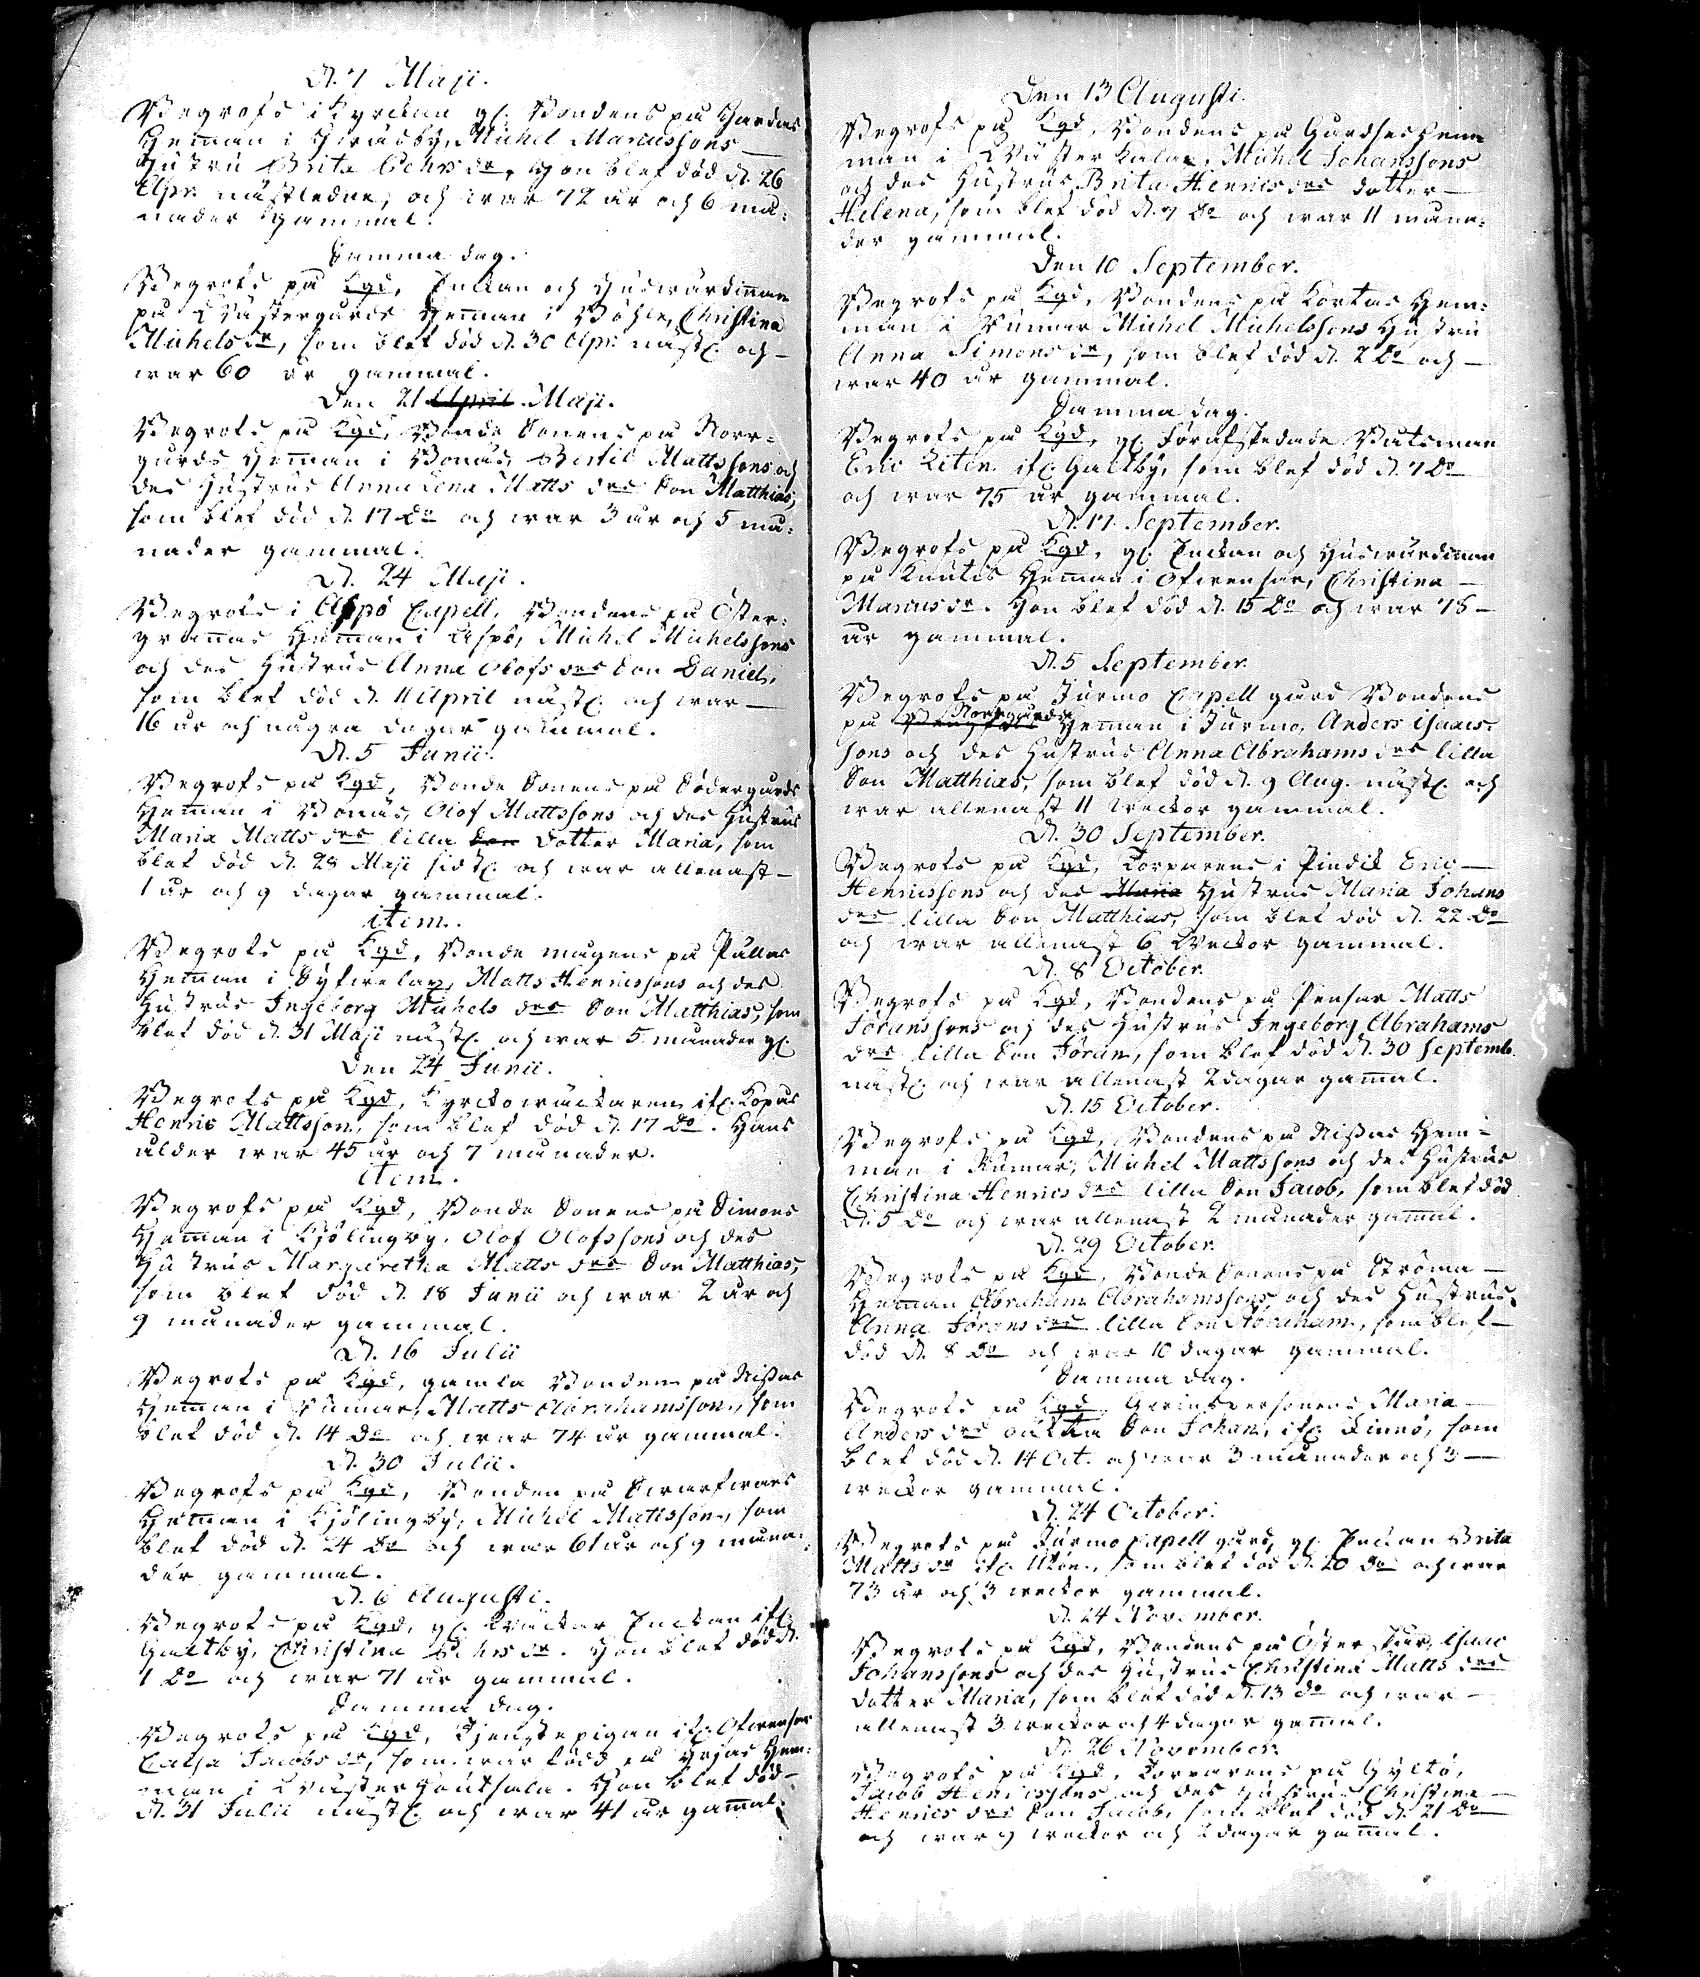 D. 7 Maji.
Begrofs i Kyrckan gl. Bondens på
Heman i Michel Marcussons
Hustru Brita Pehrs dr, Hon blef död d. 26
Apr. nästledne, och war 72 år och 6 må-
nader gammal.
Samma dag.
Begrofs på Kgd, Enckan och Huswärdinnan
på Wästergårds Heman i Böhle, Christina
Michels dr, som blef död d. 30 Apr. nästl. och
war 60 år gammal.
Den 21 April Maji.
Begrofs på Kgd, Bonde Sonens på Norr-
gårds Heman i Bonäs, Bertil Mattssons och
des Hustrus Anna Lena Matts drs Son Matthias,
som blef död d. 17 do och war 3 år och 5 må-
nader gammal.
D. 24 Maji.
Begrofs i Aspö Capell, Bondens på Öster-
grannas Heman i Aspö, Michel Michelssons
och des Hustrus Anna Olofs drs Son Daniel,
som blef död d. 11 April nästl. och war
16 år och några dagar gammal.
D. 5 Junii.
Begrofs på Kgd, Bonde Sonens på Södergårds
Heman i Bonäs, Olof Mattssons och des Hustrus
Maria Matts drs lilla Son Dotter Maria, som
blef död d. 28 Maji sidstl. och war allenast
1 år och 9 dagar gammal.
item.
Begrofs på Kgd, Bonde mågens på Pällas
Heman i Syfwelax, Matts Henricssons och des
Hustrus Ingeborg Michels drs Son Matthias, som
blef död d. 31 Maji nästl. och war 5 månader gl.
Den 24 Junii.
Begrofs på Kgd, Kyrckowäcktaren ifl. Kopas
Henric Mattsson, som blef död d. 17 do. Hans
ålder war 45 år och 7 månader.
item.
Begrofs på Kgd, Bonde Sonens på Simons
Heman i Kjölingby, Olof Olofssons och des
Hustrus Margaretha Matts drs Son Matthias,
som blef död d. 18 Junii och war 2 år och
9 månader gammal.
D. 16 Julii
Begrofs på Kgd, gamla Bonden på Nissas
Heman i Rumar, Matts Abrahamsson, som
blef död d. 14 do och war 74 år gammal.
D. 30 Julii.
Begrofs på Kgd, Bonden på Swarfwars
Heman i Kjölingby, Michel Mattsson, som
blef död d. 24 do och war 61 år och 9 måna-
der gammal.
D. 6 Augusti.
Begrofs på Kgd, gl. Enckan ifl.
Galtby, Christina Pehrs dr. Hon blef död d.
1 do och war 71 år gammal.
Samma dag.
Begrofs på Kgd, Tjenstepigan ifl. Ofwensor
Caisa Jacobs dr, som war född på Yrjas Hem-
man i Wästerhoutskala. Hon blef död
d. 31 Julii nästl. och war 41 år gamal.
Den 13 Augusti.
Begrofs på Kgd, Bondens på Gårdses Hem
man i Wästerkalax, Michel Johanssons
och des Hustrus Brita Henrics drs dotter
Helena, som blef död d. 7 do och war 11 måna-
der gammal.
Den 10 September.
Begrofs på Kgd, Bondens på Kortas Hem-
man i Rumar Michel Michelssons Hustru
Anna Simons dr, som blef död d. 2 do och
war 40 år gammal.
Samma dag.
Begrofs på Kgd, gl. förafskedade Båtsman
Eric Liten ifl. Galtby, som blef död d. 7 do
och war 75 år gammal.
D. 17 September.
Begrofs på Kgd, gl. Enckan och Huswärdinnan
på Knutis Heman i Ofwensor, Christina
Marcus dr. Hon blef död d. 15 do och war 78
år gammal.
D. 5 September.
Begrofs på Jurmo Capell gård Bondens
på Norrgårds Heman i Jurmo, Anders Isaacs-
sons och des Hustrus Anna Abrahams drs lilla
Son Matthias, som blef död d. 9 Aug. nästl. och
war allenast 11 weckor gammal.
D. 30 September.
Begrofs på Kgd, Torparens i Eric
Henricssons och des Maria Hustrus Maria Johans
drs lilla Son Matthias, som blef död d. 22 do
och war allenast 6 Weckor gammal.
D. 8 October.
Begrofs på Kgd, Bondens på Pensar Matts
Jöranssons och des Hustrus Ingeborg Abrahams
drs lilla Son Jöran, som blef död d. 30 Septemb.
nästl. och war allenast 2 dagar gamal.
D. 15 October.
Begrofs på Kgd, Bondens på Nissas Hem-
man i Rumar, Michel Mattssons och des Hustrus
Christina Henrics drs lilla Son Jacob, som blef död
d. 5 do och war allenast 2 månader gamal.
D. 29 October.
Begrofs på Kgd, Bonde Sonens på Ströma
Heman Abraham Abrahamssons och des Hustrus
Anna Jörans drs lilla Son Abraham, som blef
död d. 8 do och war 10 dagar gammal.
Samma dag.
Begrofs på Kgd, Maria
Anders drs oäkta Son Johan, ifl. Finnö, som
blef död d. 14 Oct. och war 3 månader och 3
weckor gammal.
D. 24 October.
Begrofs på Jurmo Capell gård, gl. Enckan Brita
Matts dr ifl. Utön, som blef död d. 20 do och war
73 år och 3 weckor gammal.
D. 24 November.
Begrofs på Kgd, Bondens på Österskär, Isaac
Johanssons och des Hustrus Christina Matts drs
dotter Maria, som blef död d. 13 do och war
allenast 3 weckor och 4 dagar gamal.
D. 26 November.
Begrofs på Kgd, Torparens på Gyltö,
Jacob Henricssons och des Hustrus Christina
Henrics drs Son Jacob, som blef död d. 21 do
och war 9 weckor och 2 dagar gamal.